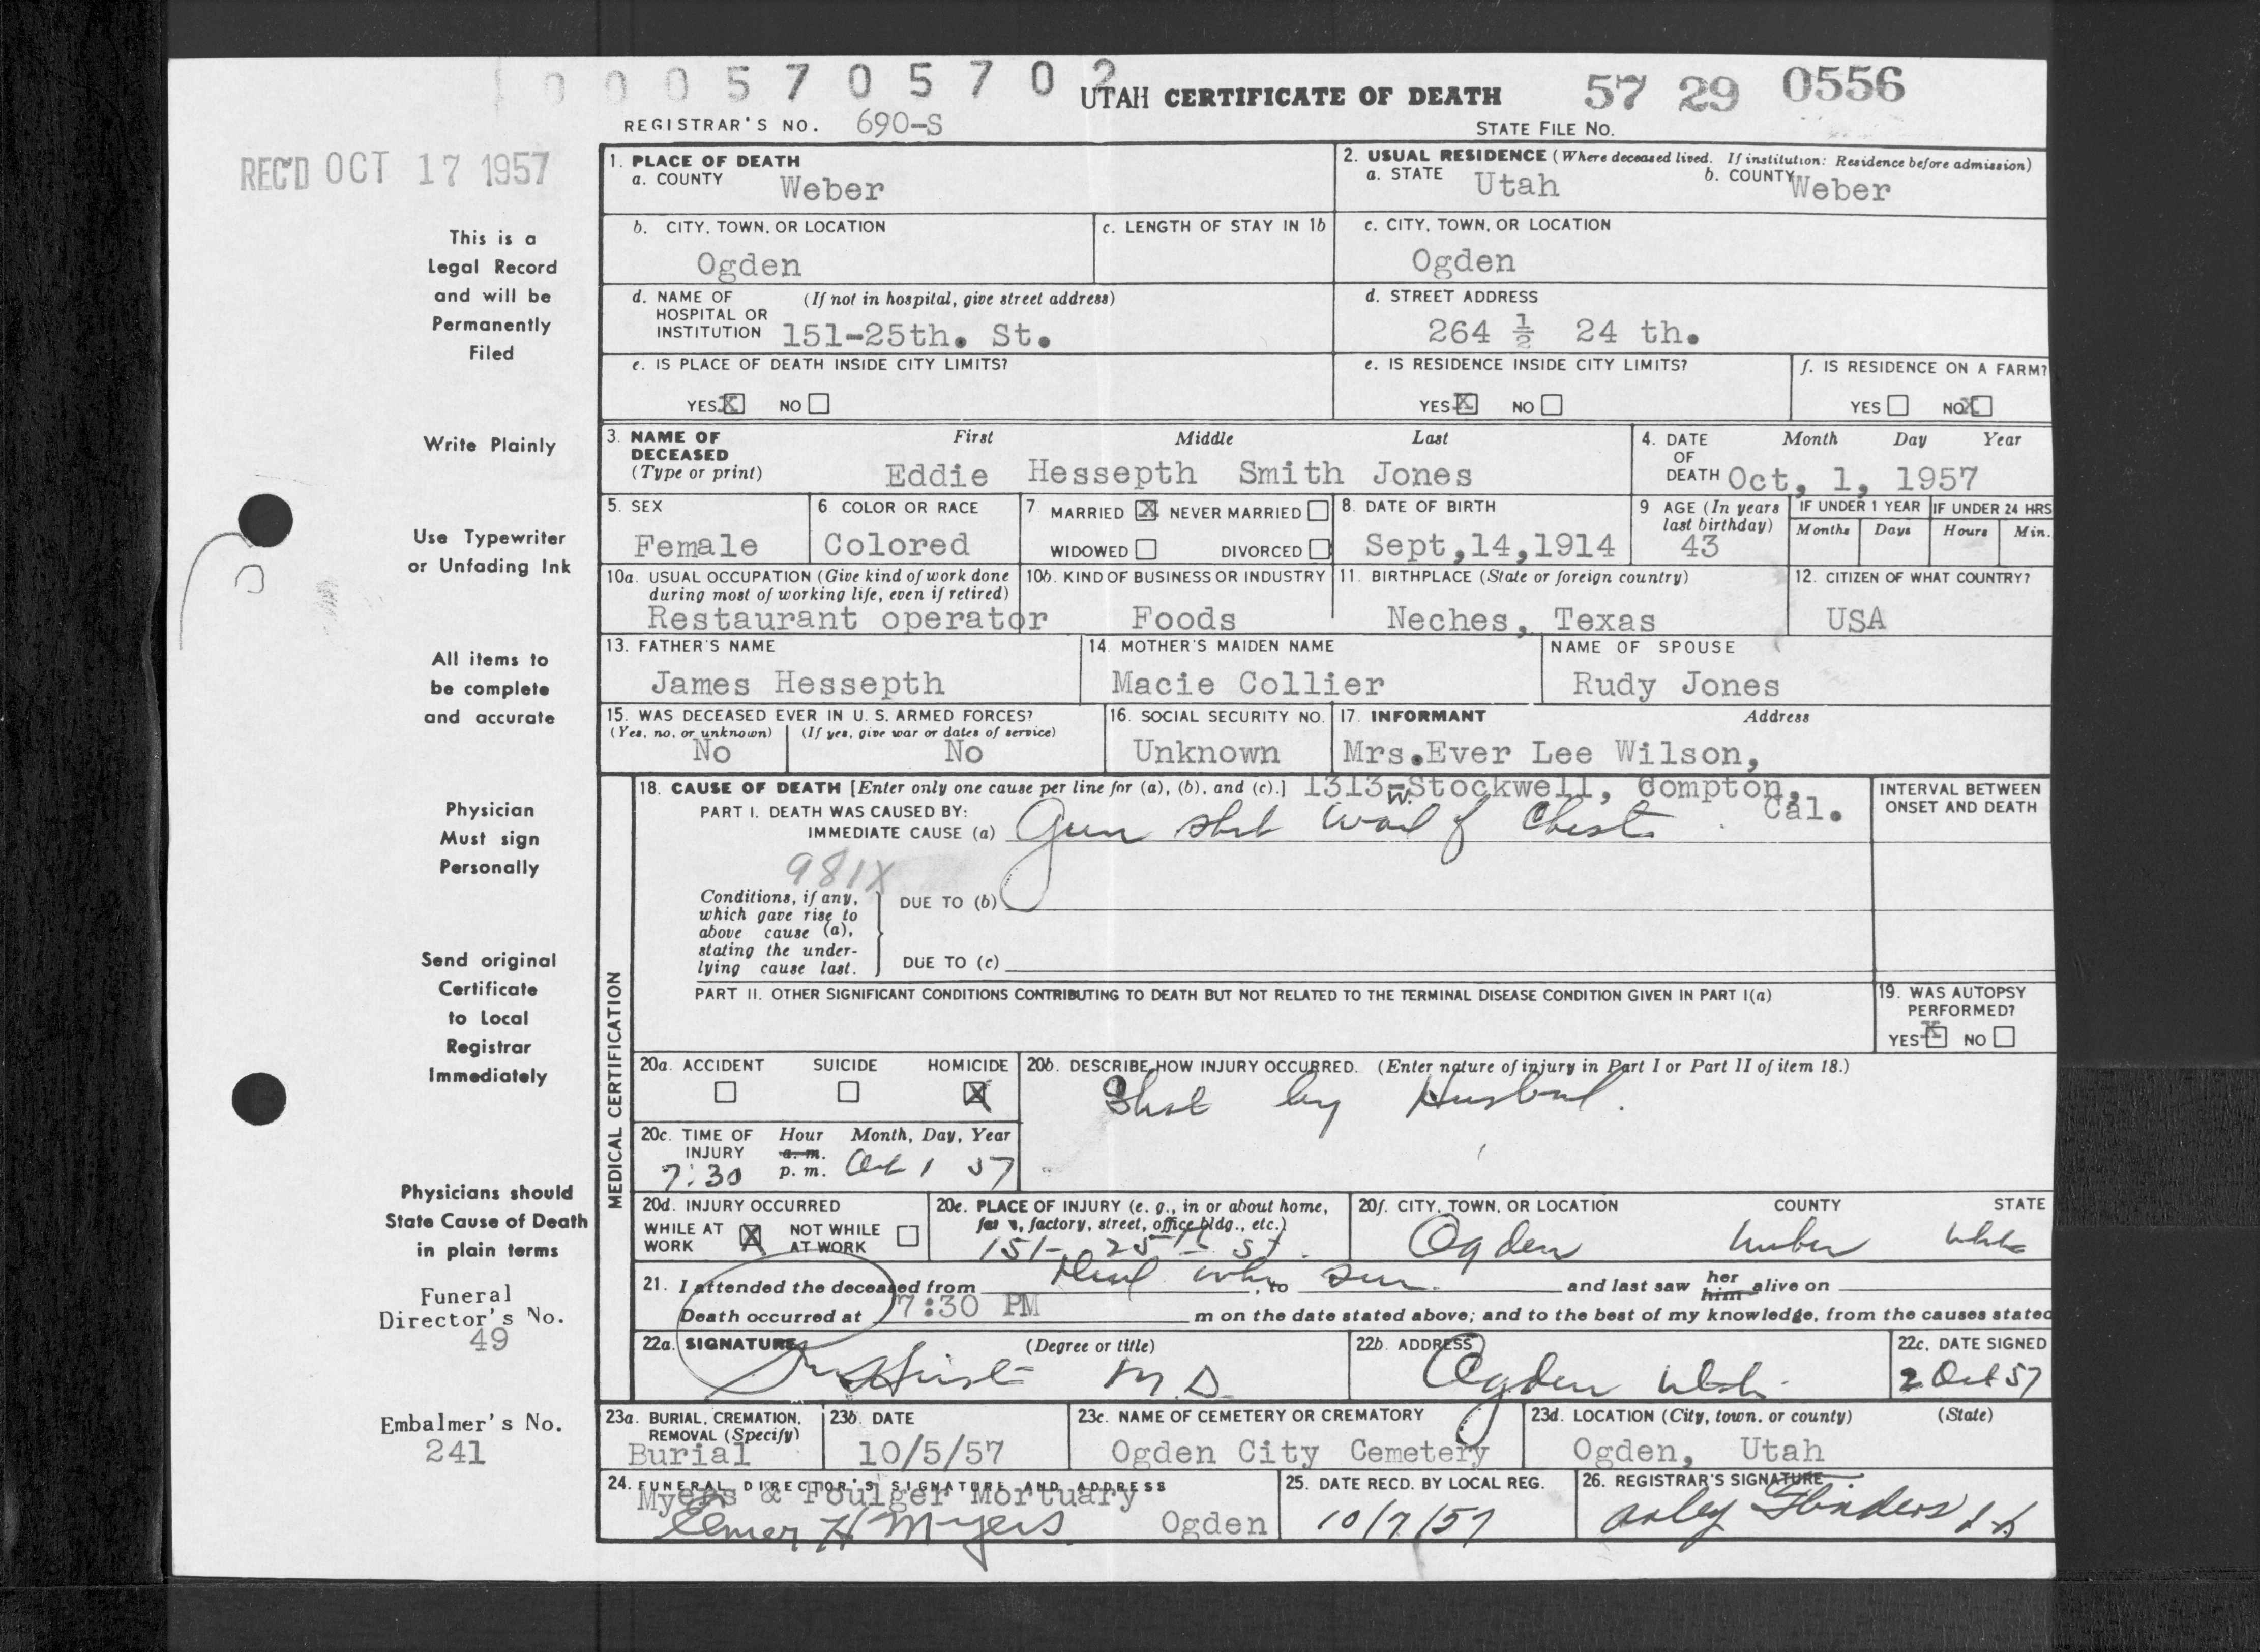 1 0 0 0 5 7 0 5 7 0 2
UTAH CERTIFICATE OF DEATH
57 29 0556
REGISTRAR'S NO. 690-S
STATE FILE NO.
REC'D OCT 17 1957
This is a
Legal Record
and will be
Permanently
Filed
Write Plainly
Use Typewriter
or Unfading Ink
All items to
be complete
and accurate
Physician
Must sign
Personally
Send original
Certificate
to Local
Registrar
Immediately
Physicians should
State Cause of Death
in plain terms
Funeral
Director's No.
49
Embalmer's No.
241
1. PLACE OF DEATH
a. COUNTY Weber
2. USUAL RESIDENCE (Where deceased lived. If institution: Residence before admission)
a. STATE Utah b. COUNTY Weber
b. CITY, TOWN, OR LOCATION
Ogden
c. LENGTH OF STAY IN 1b
c. CITY, TOWN, OR LOCATION
Ogden
d. NAME OF (If not in hospital, give street address)
HOSPITAL OR
INSTITUTION 151-25th. St.
d. STREET ADDRESS
264 ½ 24 th.
e. IS PLACE OF DEATH INSIDE CITY LIMITS?
YES X NO
e. IS RESIDENCE INSIDE CITY LIMITS?
YES X NO
f. IS RESIDENCE ON A FARM?
YES NO X
3. NAME OF DECEASED (Type or print) First Middle Last
Eddie Hessepth Smith Jones
4. DATE OF DEATH Month Day Year
Oct, 1, 1957
5. SEX
Female
6. COLOR OR RACE
Colored
7. MARRIED X NEVER MARRIED
WIDOWED DIVORCED
8. DATE OF BIRTH
Sept,14,1914
9 AGE (In years last birthday)
43
IF UNDER 1 YEAR
Months Days
IF UNDER 24 HRS
Hours Min.
10a. USUAL OCCUPATION (Give kind of work done
during most of working life, even if retired)
Restaurant operator
10b. KIND OF BUSINESS OR INDUSTRY
Foods
11. BIRTHPLACE (State or foreign country)
Neches, Texas
12. CITIZEN OF WHAT COUNTRY?
USA
13. FATHER'S NAME
James Hessepth
14. MOTHER'S MAIDEN NAME
Macie Collier
NAME OF SPOUSE
Rudy Jones
15. WAS DECEASED EVER IN U. S. ARMED FORCES?
(Yes, no, or unknown) (If yes, give war or dates of service)
No No
16. SOCIAL SECURITY NO.
Unknown
17. INFORMANT Address
Mrs.Ever Lee Wilson,
1313-W. Stockwell, Compton, Cal.
MEDICAL CERTIFICATION
18. CAUSE OF DEATH [Enter only one cause per line for (a), (b), and (c).]
PART I. DEATH WAS CAUSED BY:
IMMEDIATE CAUSE (a) Gun shot wound of Chest
INTERVAL BETWEEN
ONSET AND DEATH
981X
Conditions, if any,
which gave rise to
above cause (a),
stating the under-
lying cause last.
DUE TO (b)
DUE TO (c)
PART II. OTHER SIGNIFICANT CONDITIONS CONTRIBUTING TO DEATH BUT NOT RELATED TO THE TERMINAL DISEASE CONDITION GIVEN IN PART I(a)
19. WAS AUTOPSY
PERFORMED?
YES X NO
20a. ACCIDENT SUICIDE HOMICIDE X
20b. DESCRIBE HOW INJURY OCCURRED. (Enter nature of injury in Part I or Part II of item 18.)
Shot by Husband.
20c. TIME OF INJURY Hour Month, Day, Year
a. m.
7:30 p. m. Oct 1 57
20d. INJURY OCCURRED
WHILE AT WORK X NOT WHILE AT WORK
20e. PLACE OF INJURY (e. g., in or about home,
farm, factory, street, office bldg., etc.)
151- 25th St.
20f. CITY, TOWN, OR LOCATION COUNTY STATE
Ogden Weber Utah
21. I attended the deceased from Dead when seen , to and last saw her him alive on
Death occurred at 7:30 PM m on the date stated above; and to the best of my knowledge, from the causes stated
22a. SIGNATURE (Degree or title)
M.D.
22b. ADDRESS
Ogden Utah
22c. DATE SIGNED
2 Oct 57
23a. BURIAL, CREMATION,
REMOVAL (Specify)
Burial
23b. DATE
10/5/57
23c. NAME OF CEMETERY OR CREMATORY
Ogden City Cemetery
23d. LOCATION (City, town, or county) (State)
Ogden, Utah
24. FUNERAL DIRECTOR'S SIGNATURE AND ADDRESS
Myers & Foulger Mortuary
Elmer H Myers Ogden
25. DATE RECD. BY LOCAL REG.
10/7/57
26. REGISTRAR'S SIGNATURE